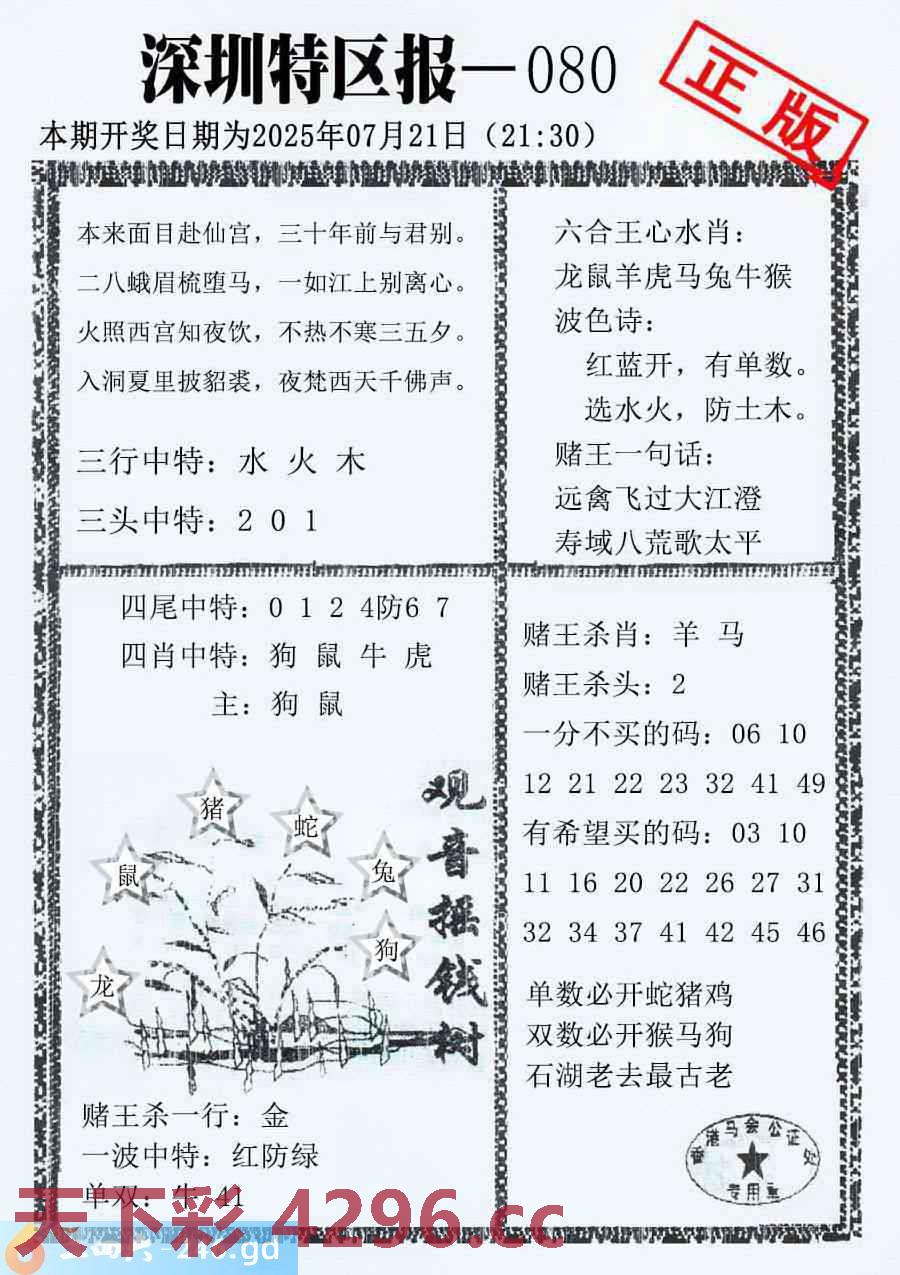 深圳特区报—080
正版
本期开奖日期为2025年07月21日（21:30）
本来面目赴仙宫，三十年前与君别。
二八蛾眉梳堕马，一如江上别离心。
火照西宫知夜饮，不热不寒三五夕。
入洞夏里披貂裘，夜梵西天千佛声。
三行中特：水 火 木
三头中特：2 0 1
六合王心水肖：
龙鼠羊虎马兔牛猴
波色诗：
红蓝开，有单数。
选水火，防土木。
赌王一句话：
远禽飞过大江澄
寿域八荒歌太平
四尾中特：0 1 2 4防6 7
四肖中特：狗 鼠 牛 虎
主：狗 鼠
猪
蛇
鼠
兔
狗
龙
观音摇钱树
赌王杀一行：金
一波中特：红防绿
单双：牛 41
赌王杀肖：羊 马
赌王杀头：2
一分不买的码：06 10
12 21 22 23 32 41 49
有希望买的码：03 10
11 16 20 22 26 27 31
32 34 37 41 42 45 46
单数必开蛇猪鸡
双数必开猴马狗
石湖老去最古老
香港马会公证处
专用章
天下彩 4296.cc
246.gd